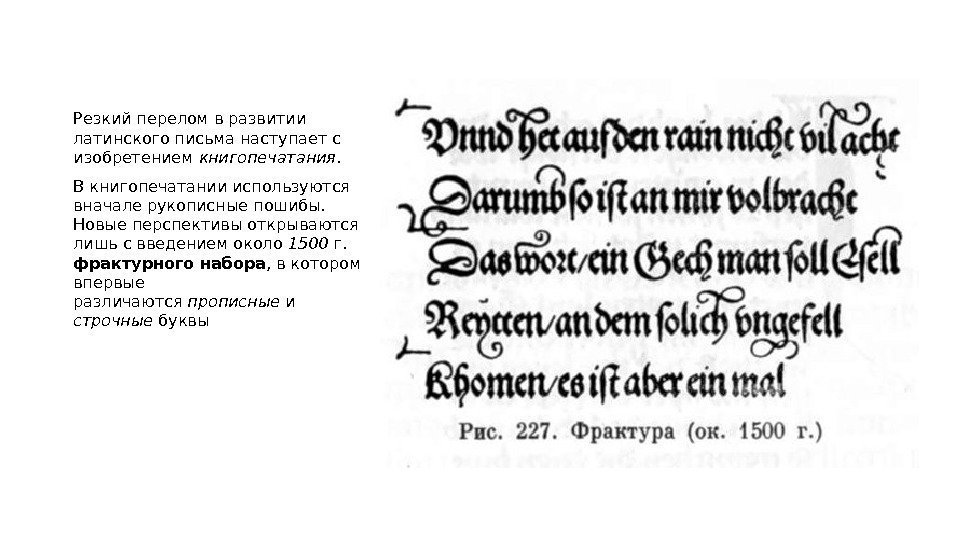 Резкий перелом в развитии
латинского письма наступает с
изобретением книгопечатания.
В книгопечатании используются
вначале рукописные пошибы.
Новые перспективы открываются
лишь с введением около 1500 г.
фрактурного набора, в котором
впервые
различаются прописные и
строчные буквы
Vnnd het auf den rain nicht vil acht
Darumb so ist an mir volbracht
Das wort/ein Gech man soll Esell
Reytten/an dem solich vngefell
Khomen/es ist aber ein mal
Рис. 227. Фрактура (ок. 1500 г.)